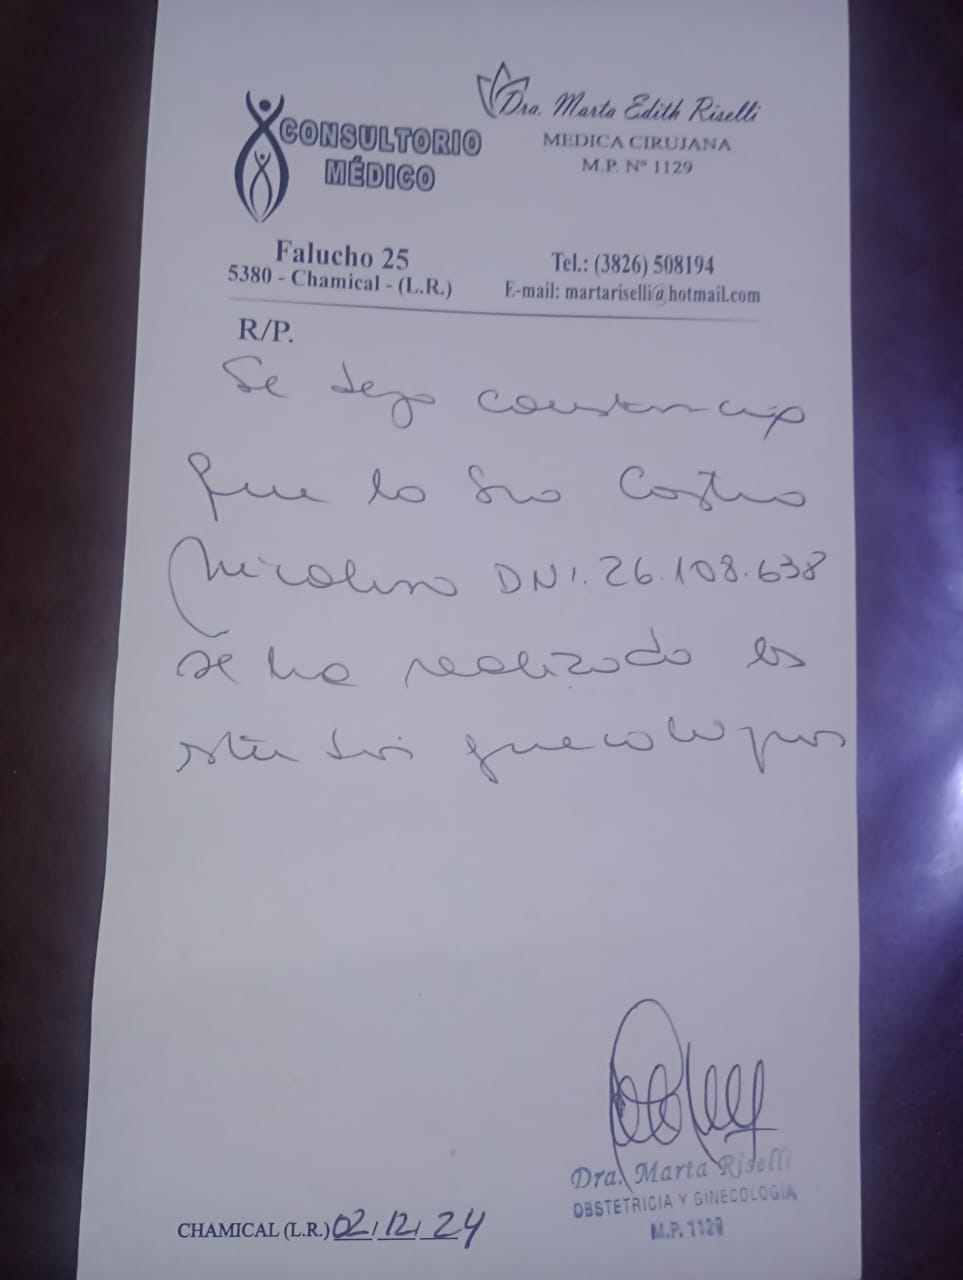 CONSULTORIO
MÉDICO
Dra. Marta Edith Riselli
MEDICA CIRUJANA
M.P. Nº 1129
Falucho 25
5380 - Chamical - (L.R.)
Tel.: (3826) 508194
E-mail: martariselli@hotmail.com
R/P.
Se deja constancia
que la Sra Castro
DNI. 26.108.638
se ha realizado los
estudios ginecologicos
Dra. Marta Riselli
OBSTETRICIA Y GINECOLOGÍA
M.P. 1129
CHAMICAL (L.R.) 02/12/24